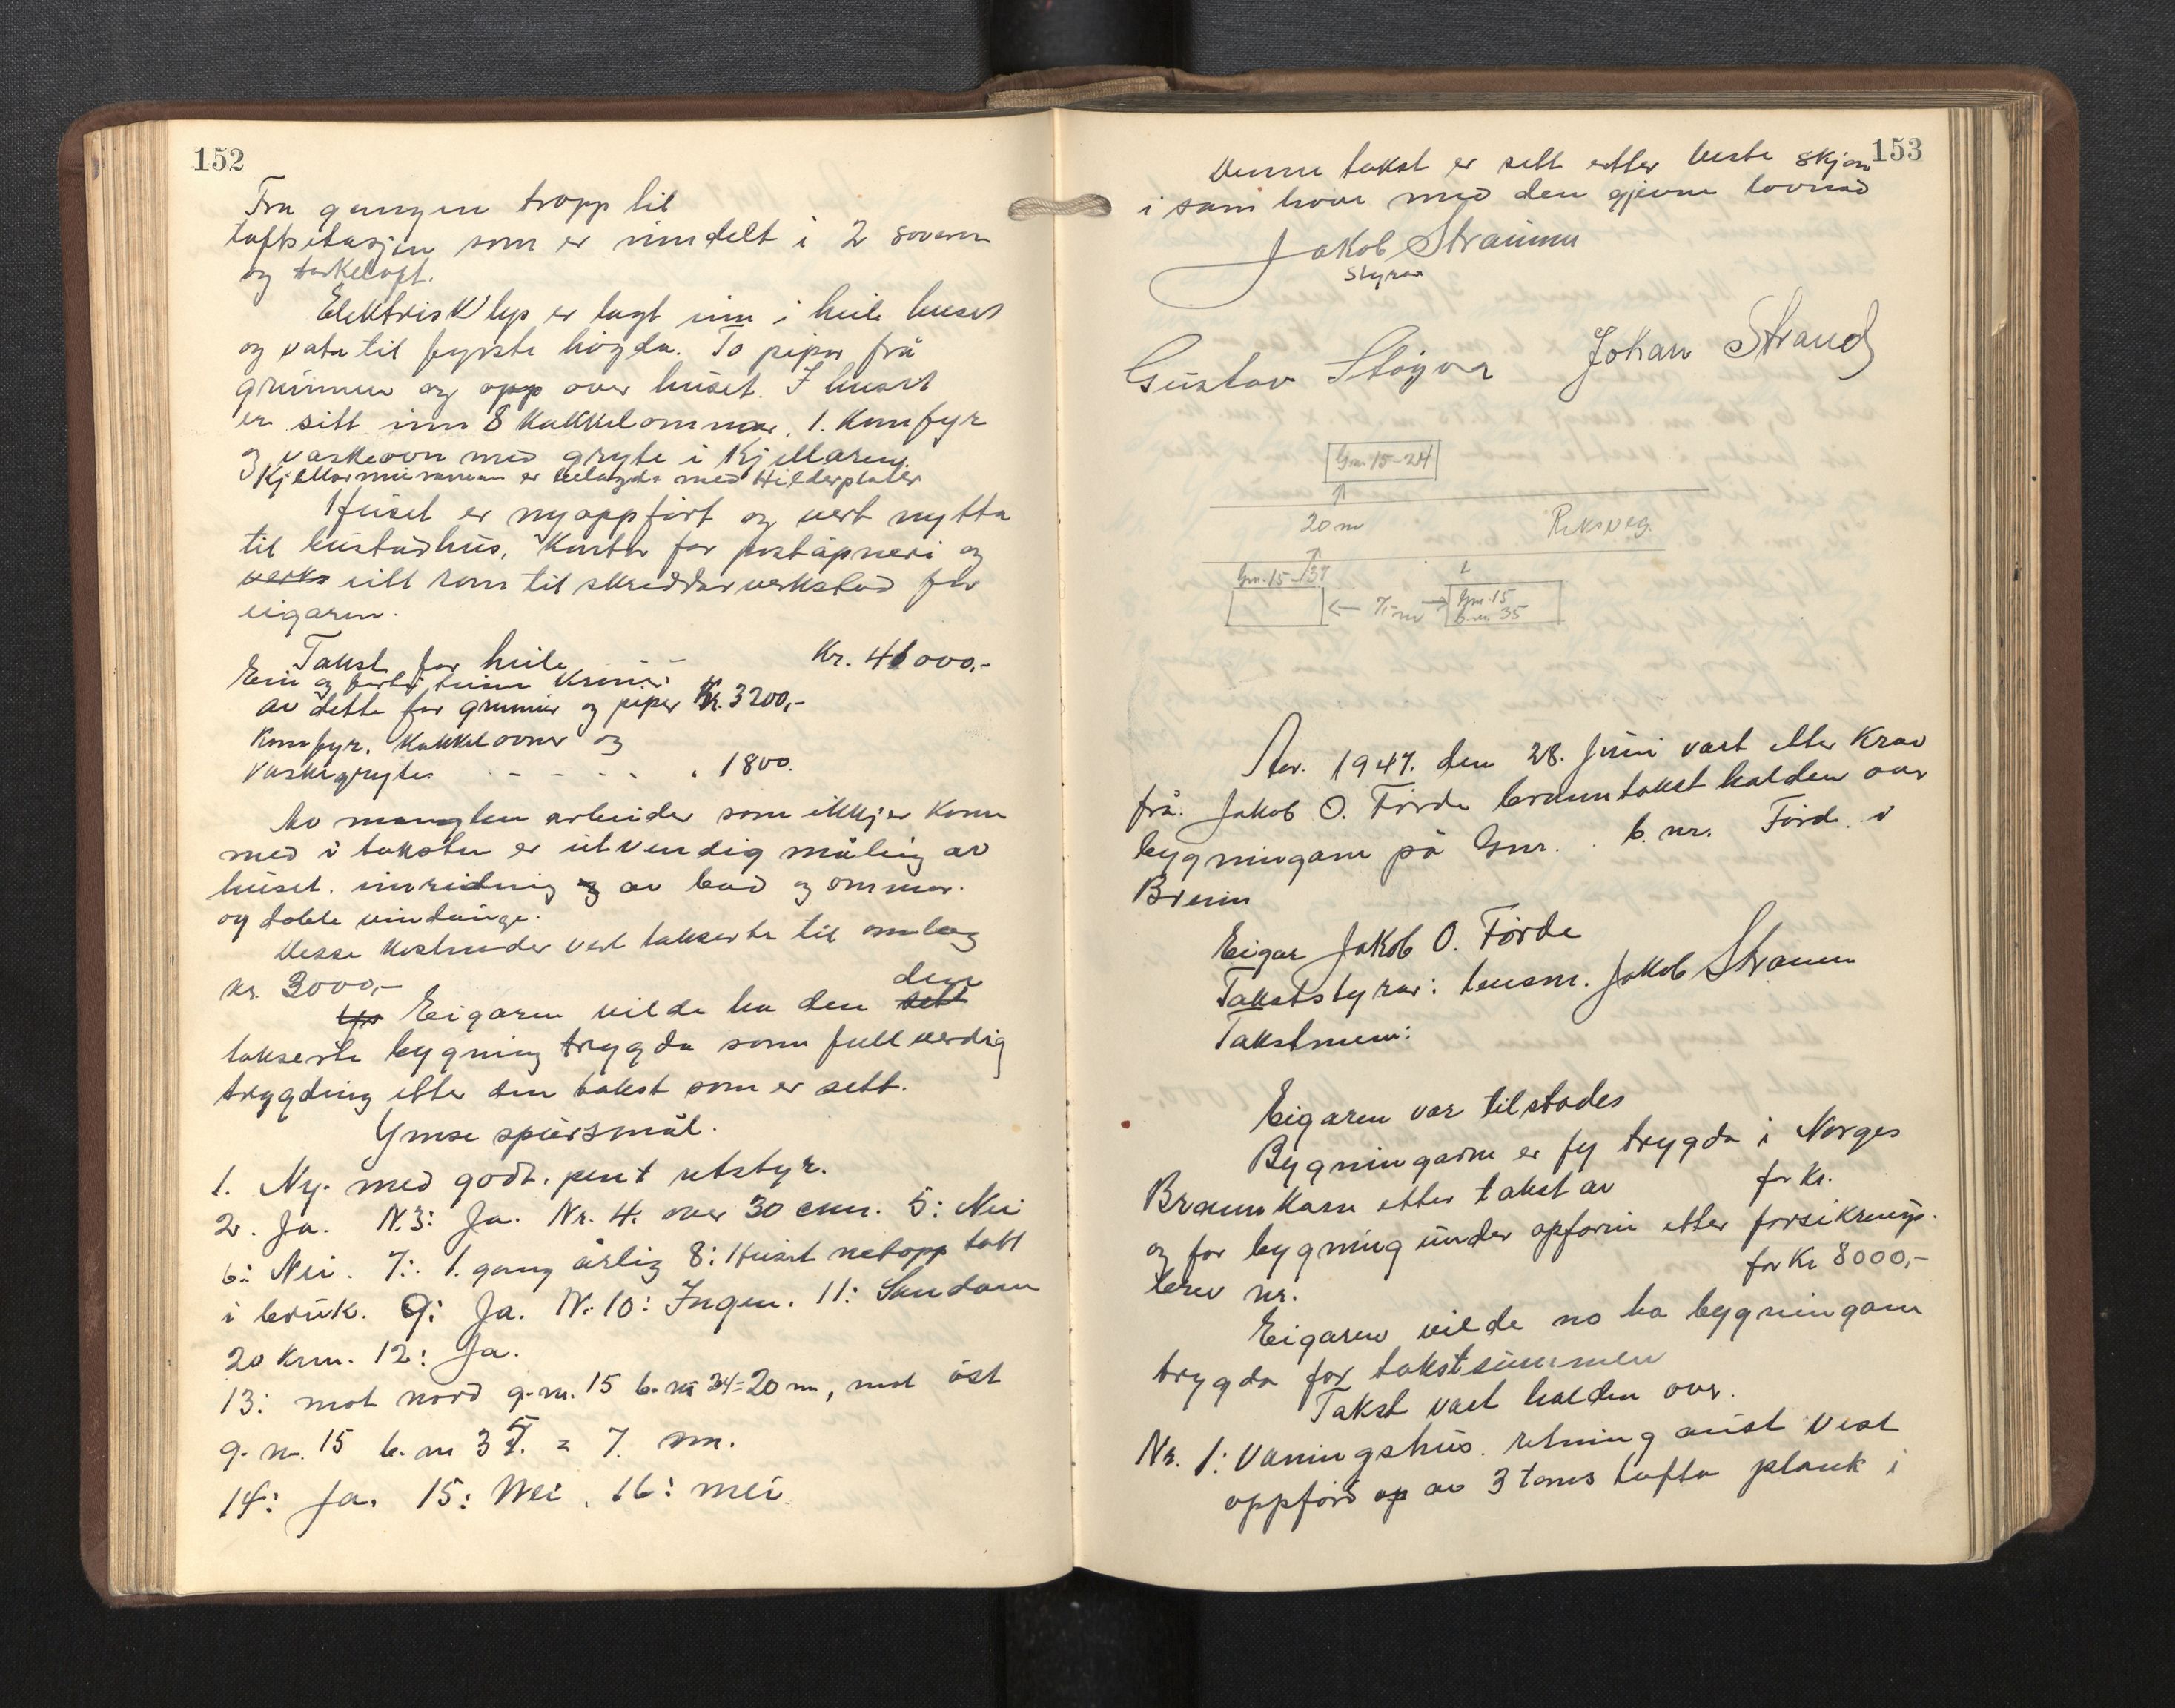 152
Fra gangen tropp til
loftsetasjen som er inndelt i 2 soverom
og tørkeloft.
Elektrisk lys er lagt inn i heile huset
og vatn til fyrste høgda. To pipor frå
grunnen og opp over huset. I huset
er sett inn 8 kakkelommnar, 1. komfyr
og vaskeovn med gryte i kjellaren.
Kjellarmurane er belagde med Hilderplater
Huset er nyoppført og vert nytta
til bustadhus, kontor for poståpneri og
verks eitt rom til skreddarverkstad for
eigaren.
Takst for heile Kr. 41000,-
Ein og førti tusen kroner
av dette for grunnmur og piper Kr. 3200,-
Komfyr, kakkelovner og
vaskegryte - - - - - 1800.
Av manglen arbeider som ikkje er kome
med i taksten er utvendig måling av
huset. innreidnig og av bad og ommar.
og doble vindauge.
Desse kostnader vert takserte til omlag
kr. 3000,-
Eigaren vilde ha den sett den
takserte bygning trygda som full verdig
trygding etter den takst som er sett.
Ymse spursmål.
1. Ny. med godt. pent utstyr.
2. Ja. N.3: Ja. Nr. 4. over 30 cm. 5: Nei
6: Nei. 7: 1. gang årlig 8: Huset netopp tatt
i bruk. 9: Ja. N. 10: Ingen. 11: Sandane
20 km. 12: Ja.
13: mot nord g.n. 15 b.nr 24=20 m, mot øst
g.n. 15 b.n 35. = 7. m.
14: Ja. 15: Nei. 16: nei
153
Denne takst er sett etter beste skjøn
i samhøve med den gjevne lovnad
Jakob Straume
styrar
Gustav Støyva Johan Strand
Gnr. 15-24
20 m Riksveg.
Gnr. 15-37
7 m
Gnr. 15
b.nr. 35
Aar. 1947. den 28. Juni vart etter krav
frå. Jakob O. Førde branntakst halden over
bygningane på Gnr. . b.nr. Førde i
Breim
Eigar Jakob O. Førde
Takststyrar: lensm. Jakob Straume
Takstmenn:
Eigaren var tilstades
Bygningarne er fy trygda i Norges
Brannkasse etter takst av for kr.
og for bygning under opføring etter forsikrings-
brev nr. for kr 8000,-
Eigaren vilde no ha bygningane
trygda for takstsummen
Takst vart halden over.
Nr. 1: Vaningshus. retning aust vest
oppførd op av 3 toms tofta plank i